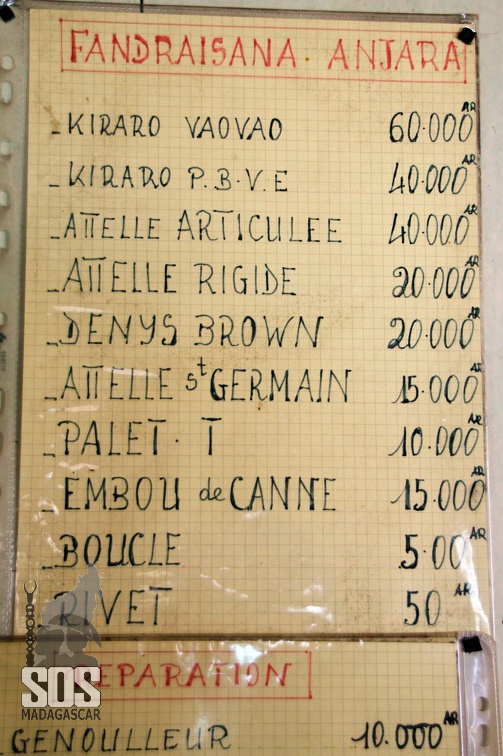 FANDRAISANA. ANJARA
-KIRARO VAOVAO 60.000 AR
-KIRARO P.B.V.E 40.000 AR
-ATTELLE ARTICULEE 40.000 AR
-ATTELLE RIGIDE 20.000 AR
-DENYS BROWN 20.000 AR
-ATTELLE St GERMAIN 15.000 AR
-PALET. T 10.000 AR
-EMBOU de CANNE 15.000 AR
-BOUCLE 5.00 AR
-RIVET 50 AR
REPARATION
SOS
MADAGASCAR
GENOULLEUR 10.000 AR